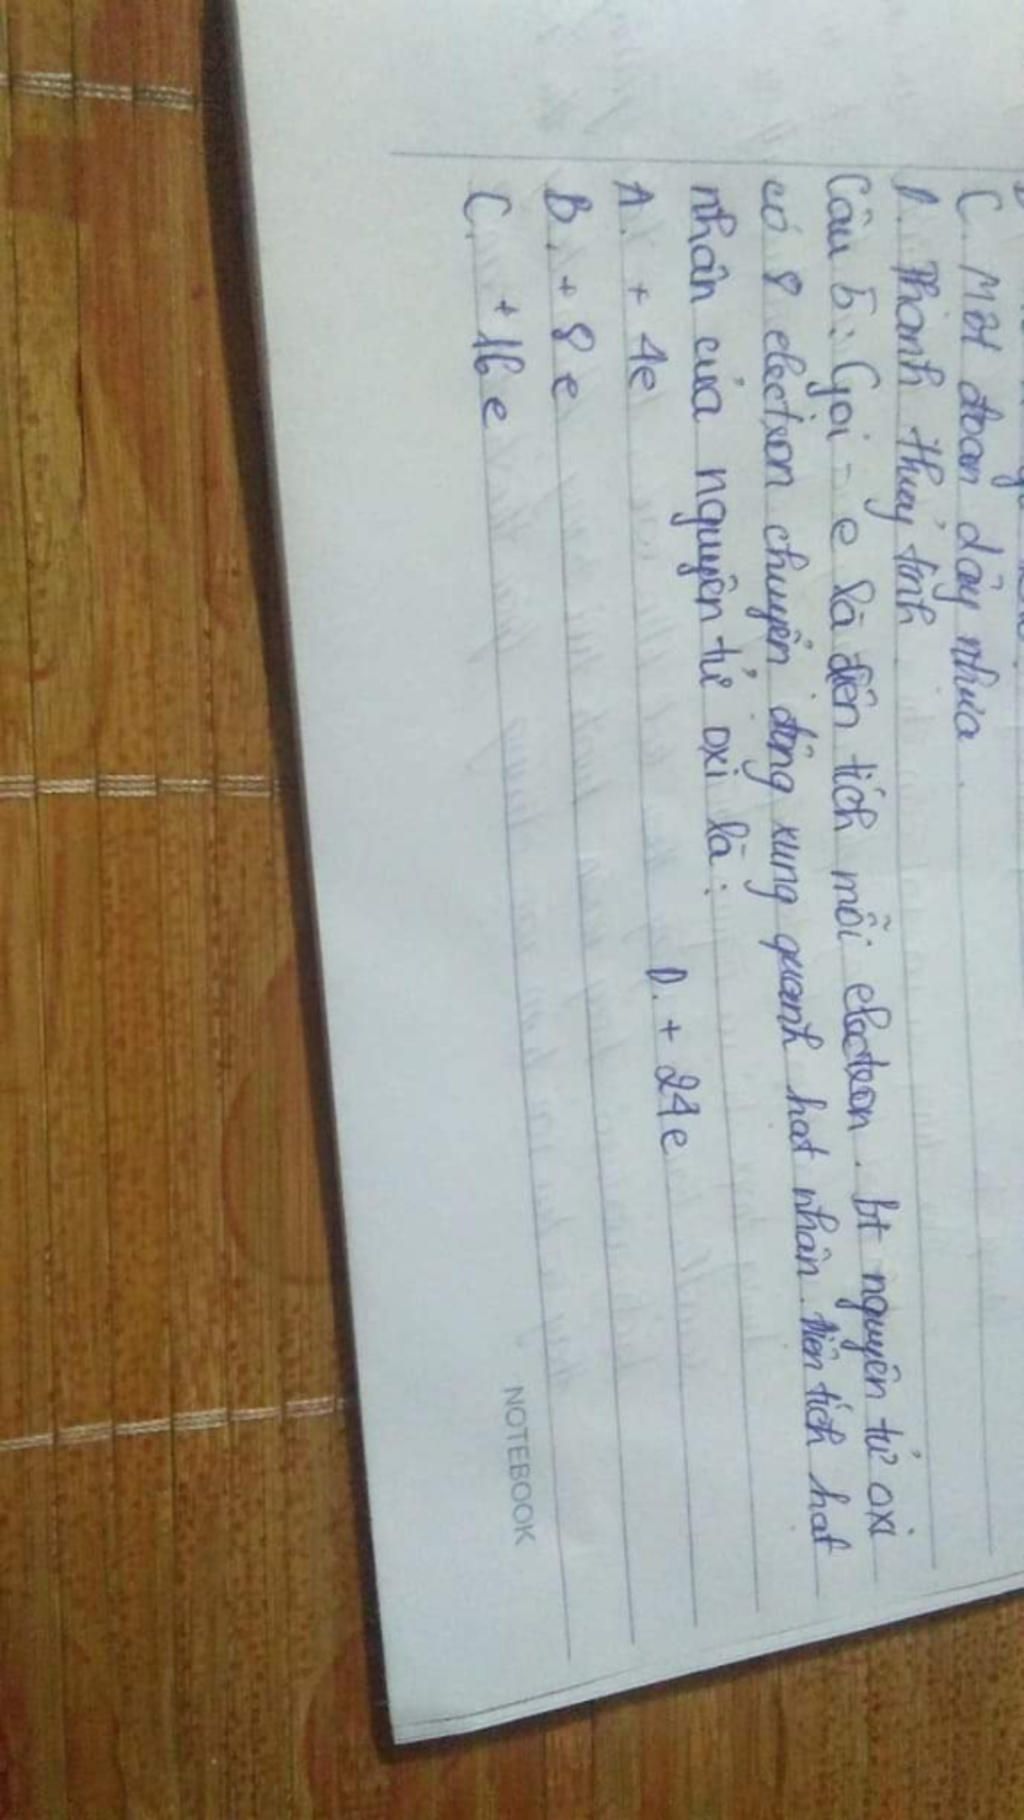 C. Một đoạn dây nhựa.
D. Thanh thuỷ tinh
Câu 5: Gọi - e là điện tích mỗi electron. bt nguyên tử oxi
có 8 electron chuyển động xung quanh hạt nhân. Điện tích hạt
nhân của nguyên tử oxi là:
A. + 4e D. + 24e
B. + 8e
C. + 16e
NOTEBOOK